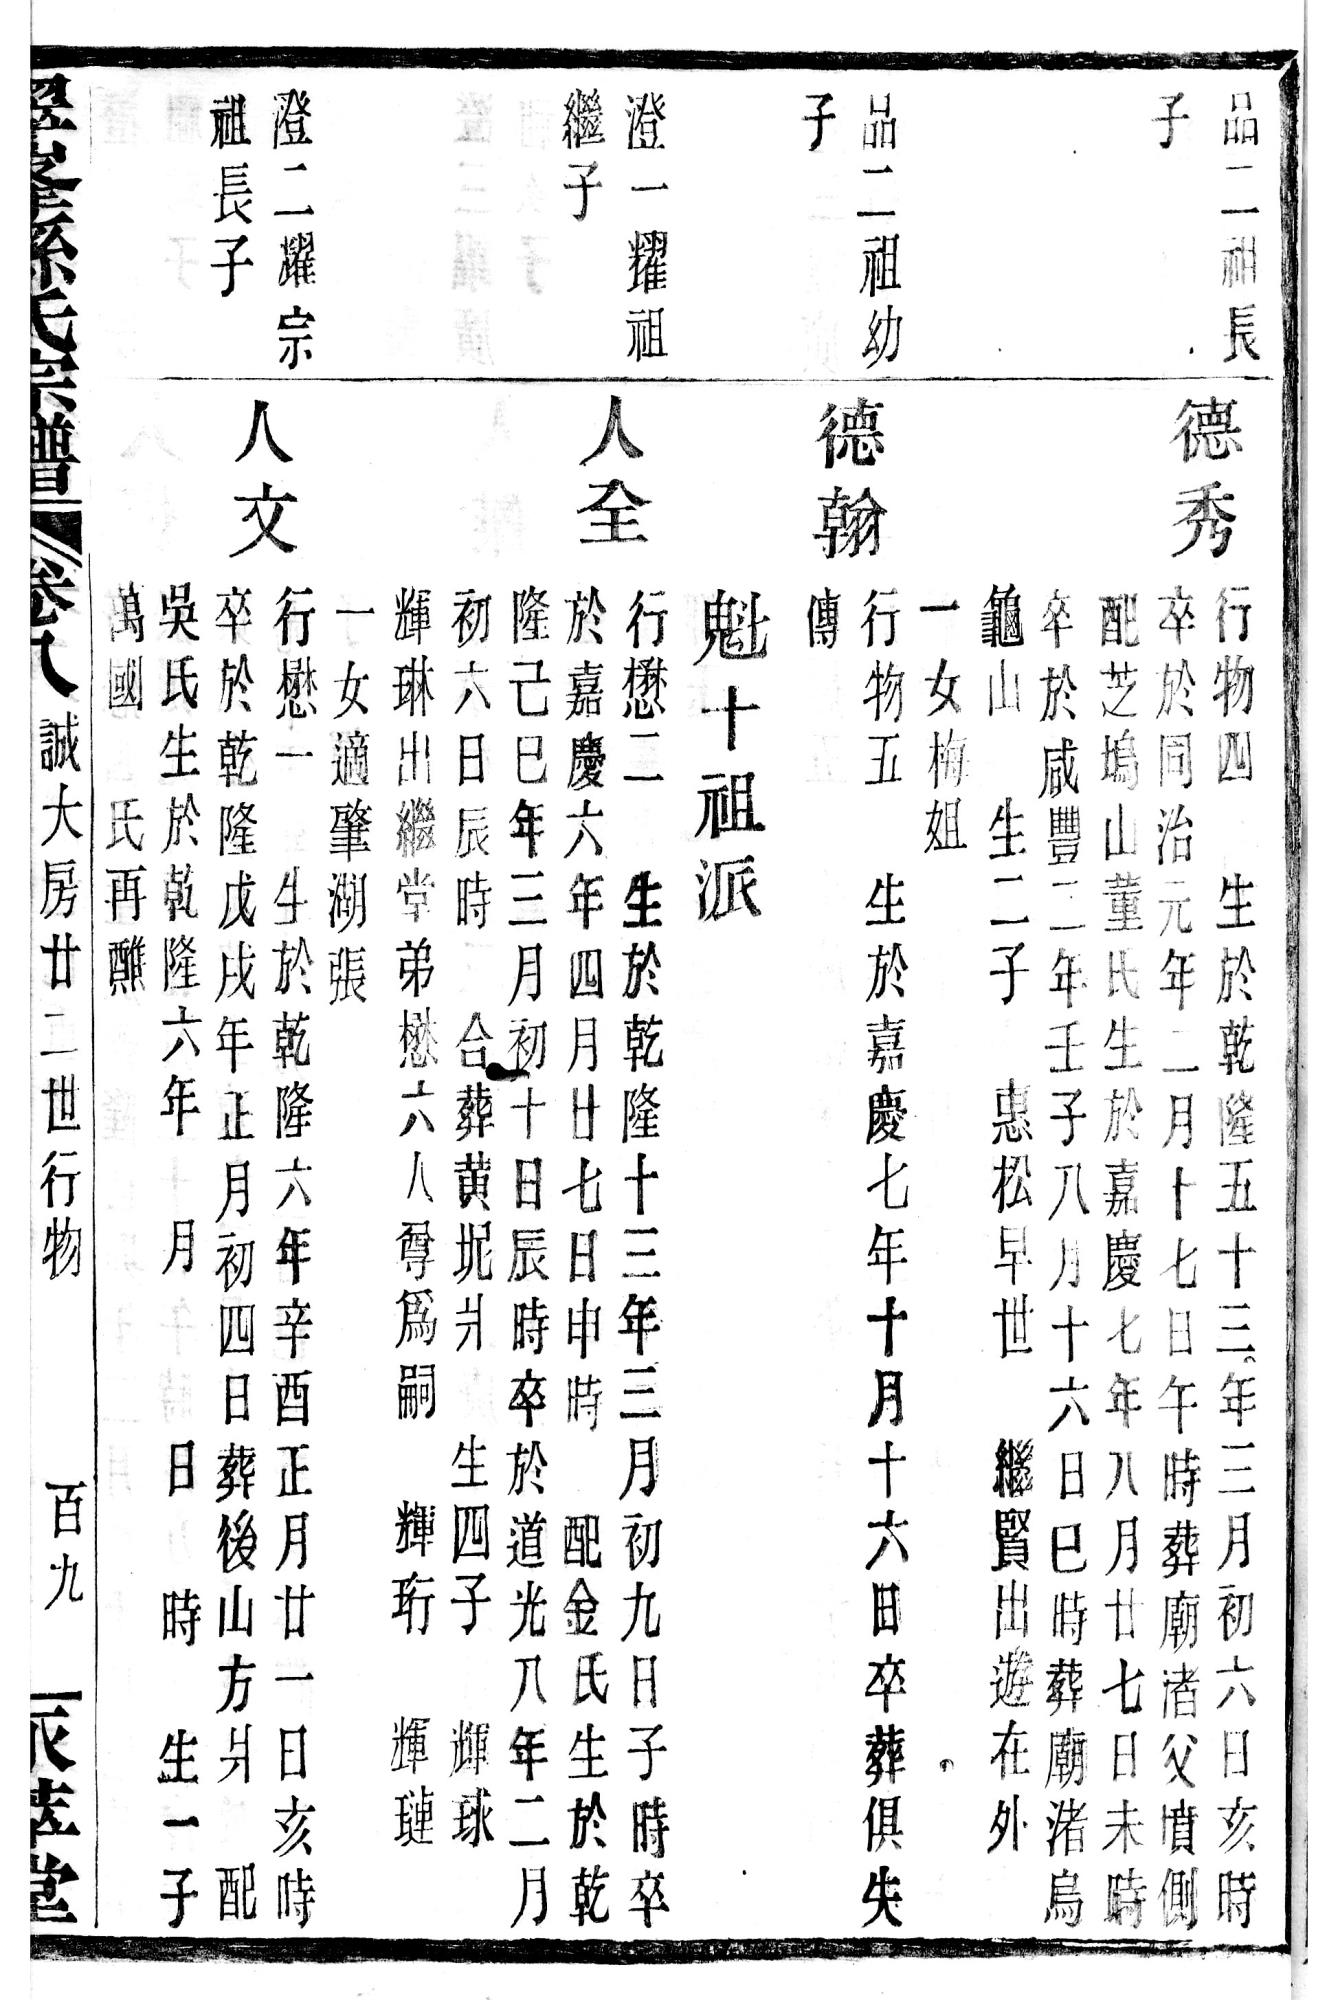 品二祖長
子
德秀
行物四　生於乾隆五十三年三月初六日亥時
卒於同治元年二月十七日午時葬廟渚父墳側
配芝塢山董氏生於嘉慶七年八月廿七日未時
卒於咸豐二年壬子八月十六日巳時葬廟渚烏
龜山　生二子　惠松早世　繼賢出遊在外
一女梅姐
品二祖幼
子
德翰
行物五　生於嘉慶七年十月十六日卒葬俱失
傳
魁十祖派
澄一耀祖
繼子
人全
行懋二　生於乾隆十三年三月初九日子時卒
於嘉慶六年四月廿七日申時　配金氏生於乾
隆己巳年三月初十日辰時卒於道光八年二月
初六日辰時　合葬黄坭爿　生四子　輝球
輝琳出繼堂弟懋六人尊爲嗣　輝珩　輝璉
一女適肇湖張
澄二耀宗
祖長子
人文
行懋一　生於乾隆六年辛酉正月廿一日亥時
卒於乾隆戊戌年正月初四日葬後山方爿　配
吳氏生於乾隆六年　月　日　時　生一子
萬國　氏再醮
孫氏宗譜　卷八　誠大房廿二世行物　百九　萃堂